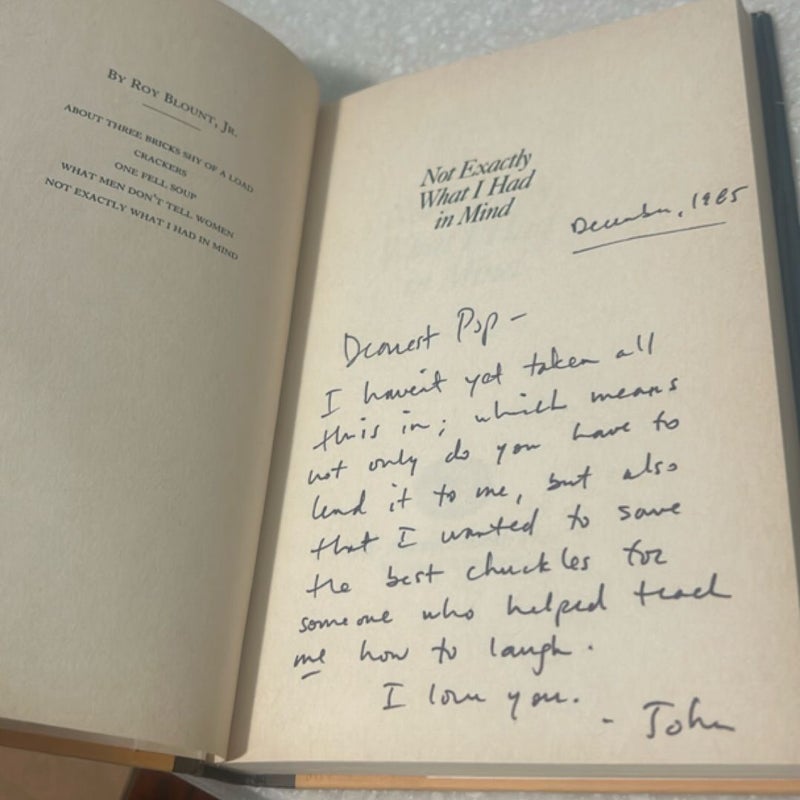 BY ROY BLOUNT, JR.
ABOUT THREE BRICKS SHY OF A LOAD
CRACKERS
ONE FELL SOUP
WHAT MEN DON'T TELL WOMEN
NOT EXACTLY WHAT I HAD IN MIND
Not Exactly
What I Had
in Mind
December, 1985
Dearest Pop -
I haven't yet taken all
this in; which means
not only do you have to
lend it to me, but also
that I wanted to save
the best chuckles for
someone who helped teach
me how to laugh.
I love you.
- John